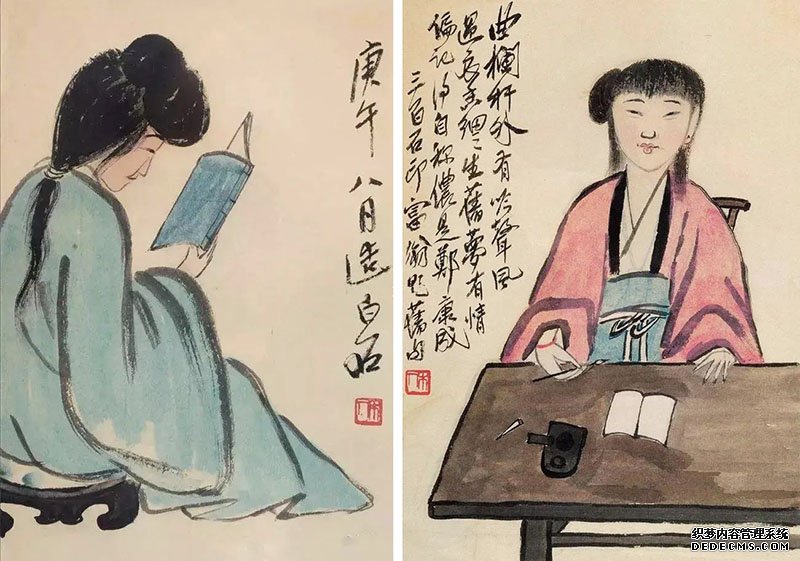 庚午八月造白石
木人
曲欄杆外有吟聲風
過衣香細〻生舊夢有情
偏記得自稱儂是鄭康成
三百石印富翁題舊句
木人
织梦内容管理系统
DEDECMS.COM